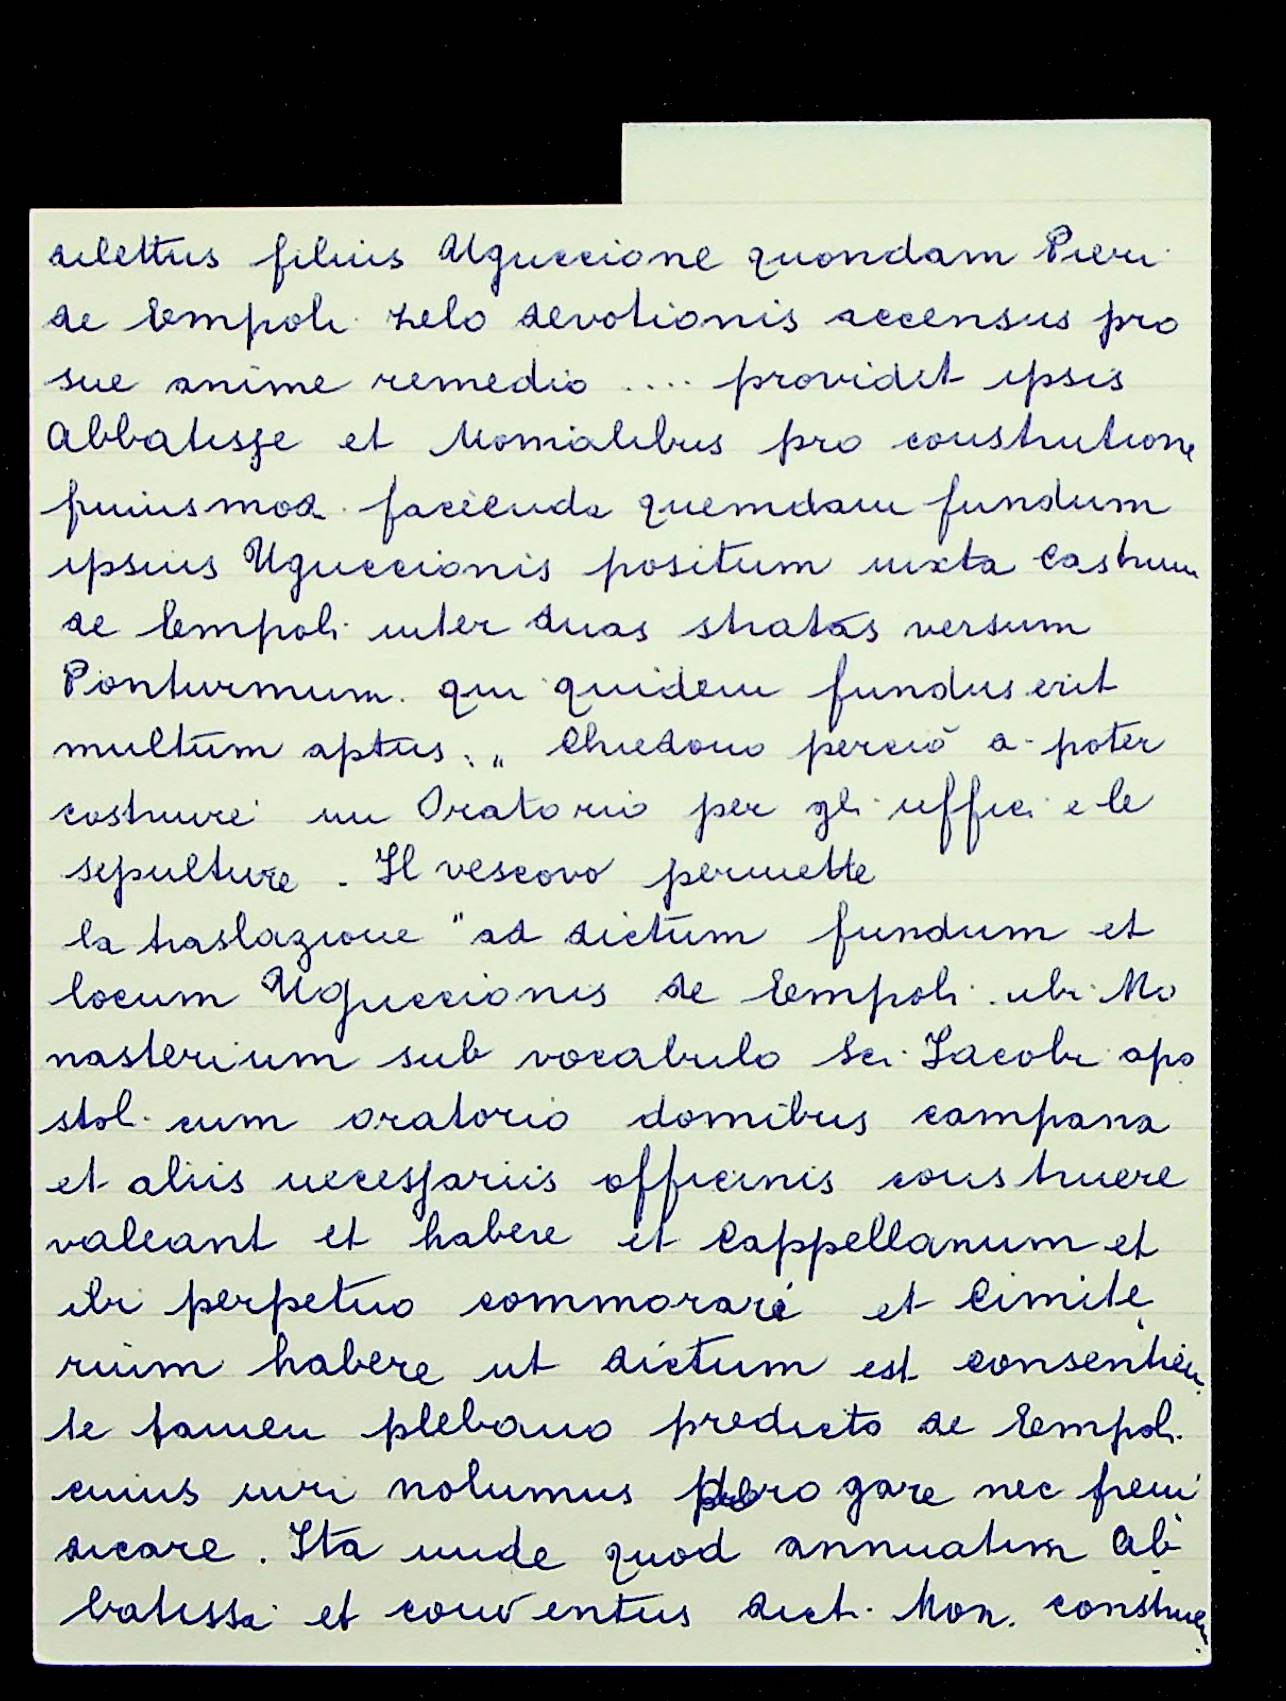 dilettus filius Uguccione quondam Pieri
de Empoli zelo devotionis accensus pro
sue anime remedio .... providit ipsis
Abbatisse et Monialibus pro constructione
huiusmod. facienda quemdam fundum
ipsius Uguccionis positum iuxta Castrum
de Empoli inter duas stratas versum
Ponturmum. qui quidem fundus erit
multum aptus. „ Chiedono perciò a poter
costruire un Oratorio per gli uffici e le
sepulture. Il vescovo permette
la traslazione "ad dictum fundum et
locum Uguccionis de Empoli ubi Mo
nasterium sub vocabulo Sci. Iacobi apo
stoli cum oratorio domibus campana
et aliis necessariis officinis construere
valeant et habere et Cappellanum et
ibi perpetuo commorare et Cimite
rium habere ut dictum est consentien
te tamen plebano predicto de Empoli
cuius iuri nolumus derogare nec preiu
dicare. Ita unde quod annuatim Ab
batissa et conventus dict. Mon. construen